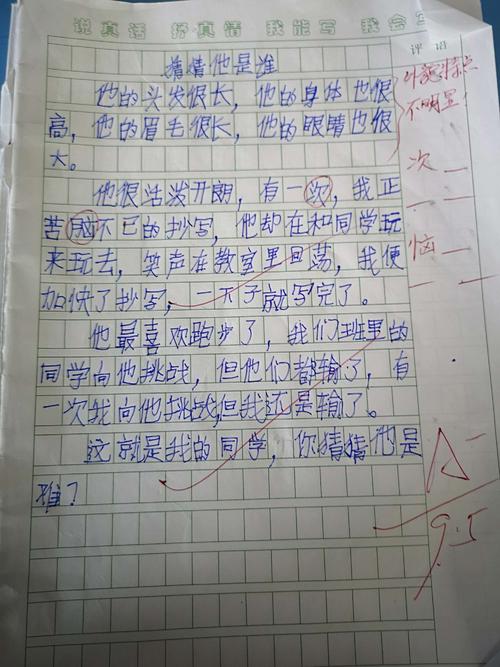 说真话 抒真情 我能写 我会
评语
猜猜他是谁
他的头发很长，他的身体也很
高，他的眉毛很长，他的眼睛也很
大。
外貌特点
不明显！
他很活泼开朗，有一次，我正
苦脑不已的抄写，他却在和同学玩
来玩去，笑声在教室里回荡，我便
加快了抄写，一下子就写完了。
次
恼
他最喜欢跑步了，我们班里的
同学向他挑战，但他们都输了，有
一次我向他挑战，但我还是输了。
这就是我的同学，你猜猜他是
谁？
A-
9.5